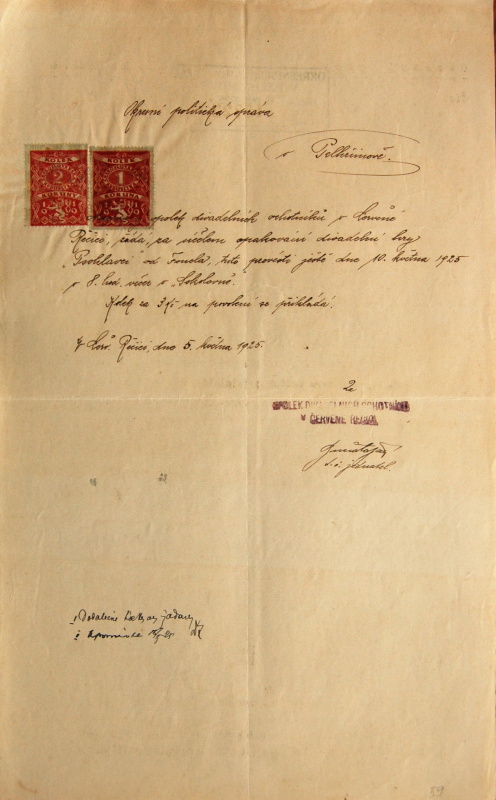 Okresní politická správa
v Pelhřimově.
KOLEK
2
KORUNY
KOLEK
1
KORUNA
spolek divadelních ochotníků v Červené
Řečici, žádá, za účelem opakování divadelní hry
"Psohlavci" od jeste dne 10. května 1925
v 8. hod. večer v "Sokolovně.
Kolek za 3 Kč na povolení se přikládá.
V Červ. Řečici, dne 5. května 1925.
Za
SPOLEK DIVADELNÍCH OCHOTNÍKŮ
v ČERVENÉ ŘEČICI
t. č. jednatel.